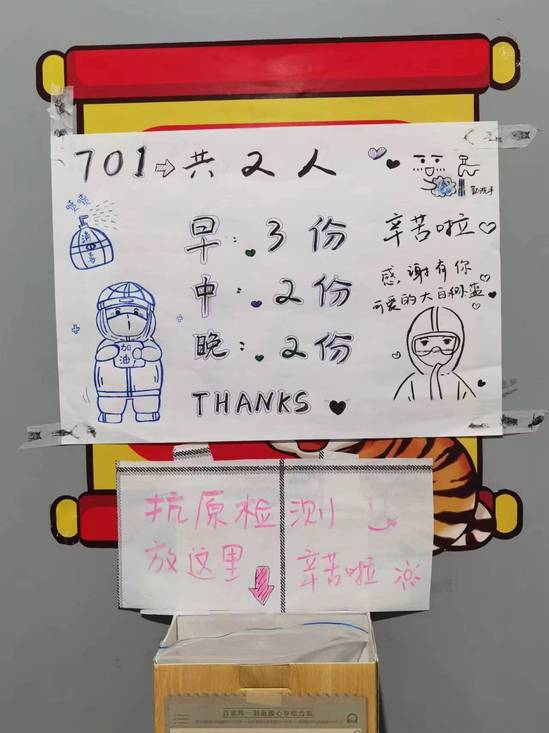 701⇨共2人
早：3份
中：2份
晚：2份
THANKS
勤洗手
辛苦啦
感谢有你
可爱的大白和小蓝
消毒
加油
抗原检测
放这里
辛苦啦